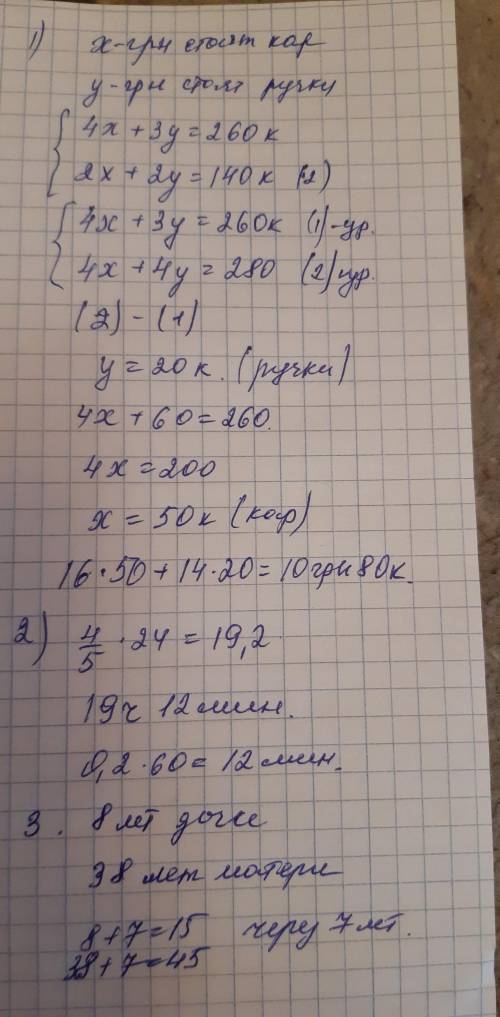 1) х-грн стоят кар
у-грн стоят ручки
4х + 3у = 260к
2х + 2у = 140к (2)
4х + 3у = 260к (1)-ур.
4х + 4у = 280 (2) ур.
(2) - (1)
у = 20 к. (ручки)
4х + 60 = 260.
4х = 200
х = 50к (кар)
16·50 + 14·20 = 10грн 80к.
2) 4/5 · 24 = 19,2
19ч 12 мин.
0,2·60 = 12 мин.
3. 8 лет дочке
38 лет матери
8+7=15 через 7 лет.
38+7=45